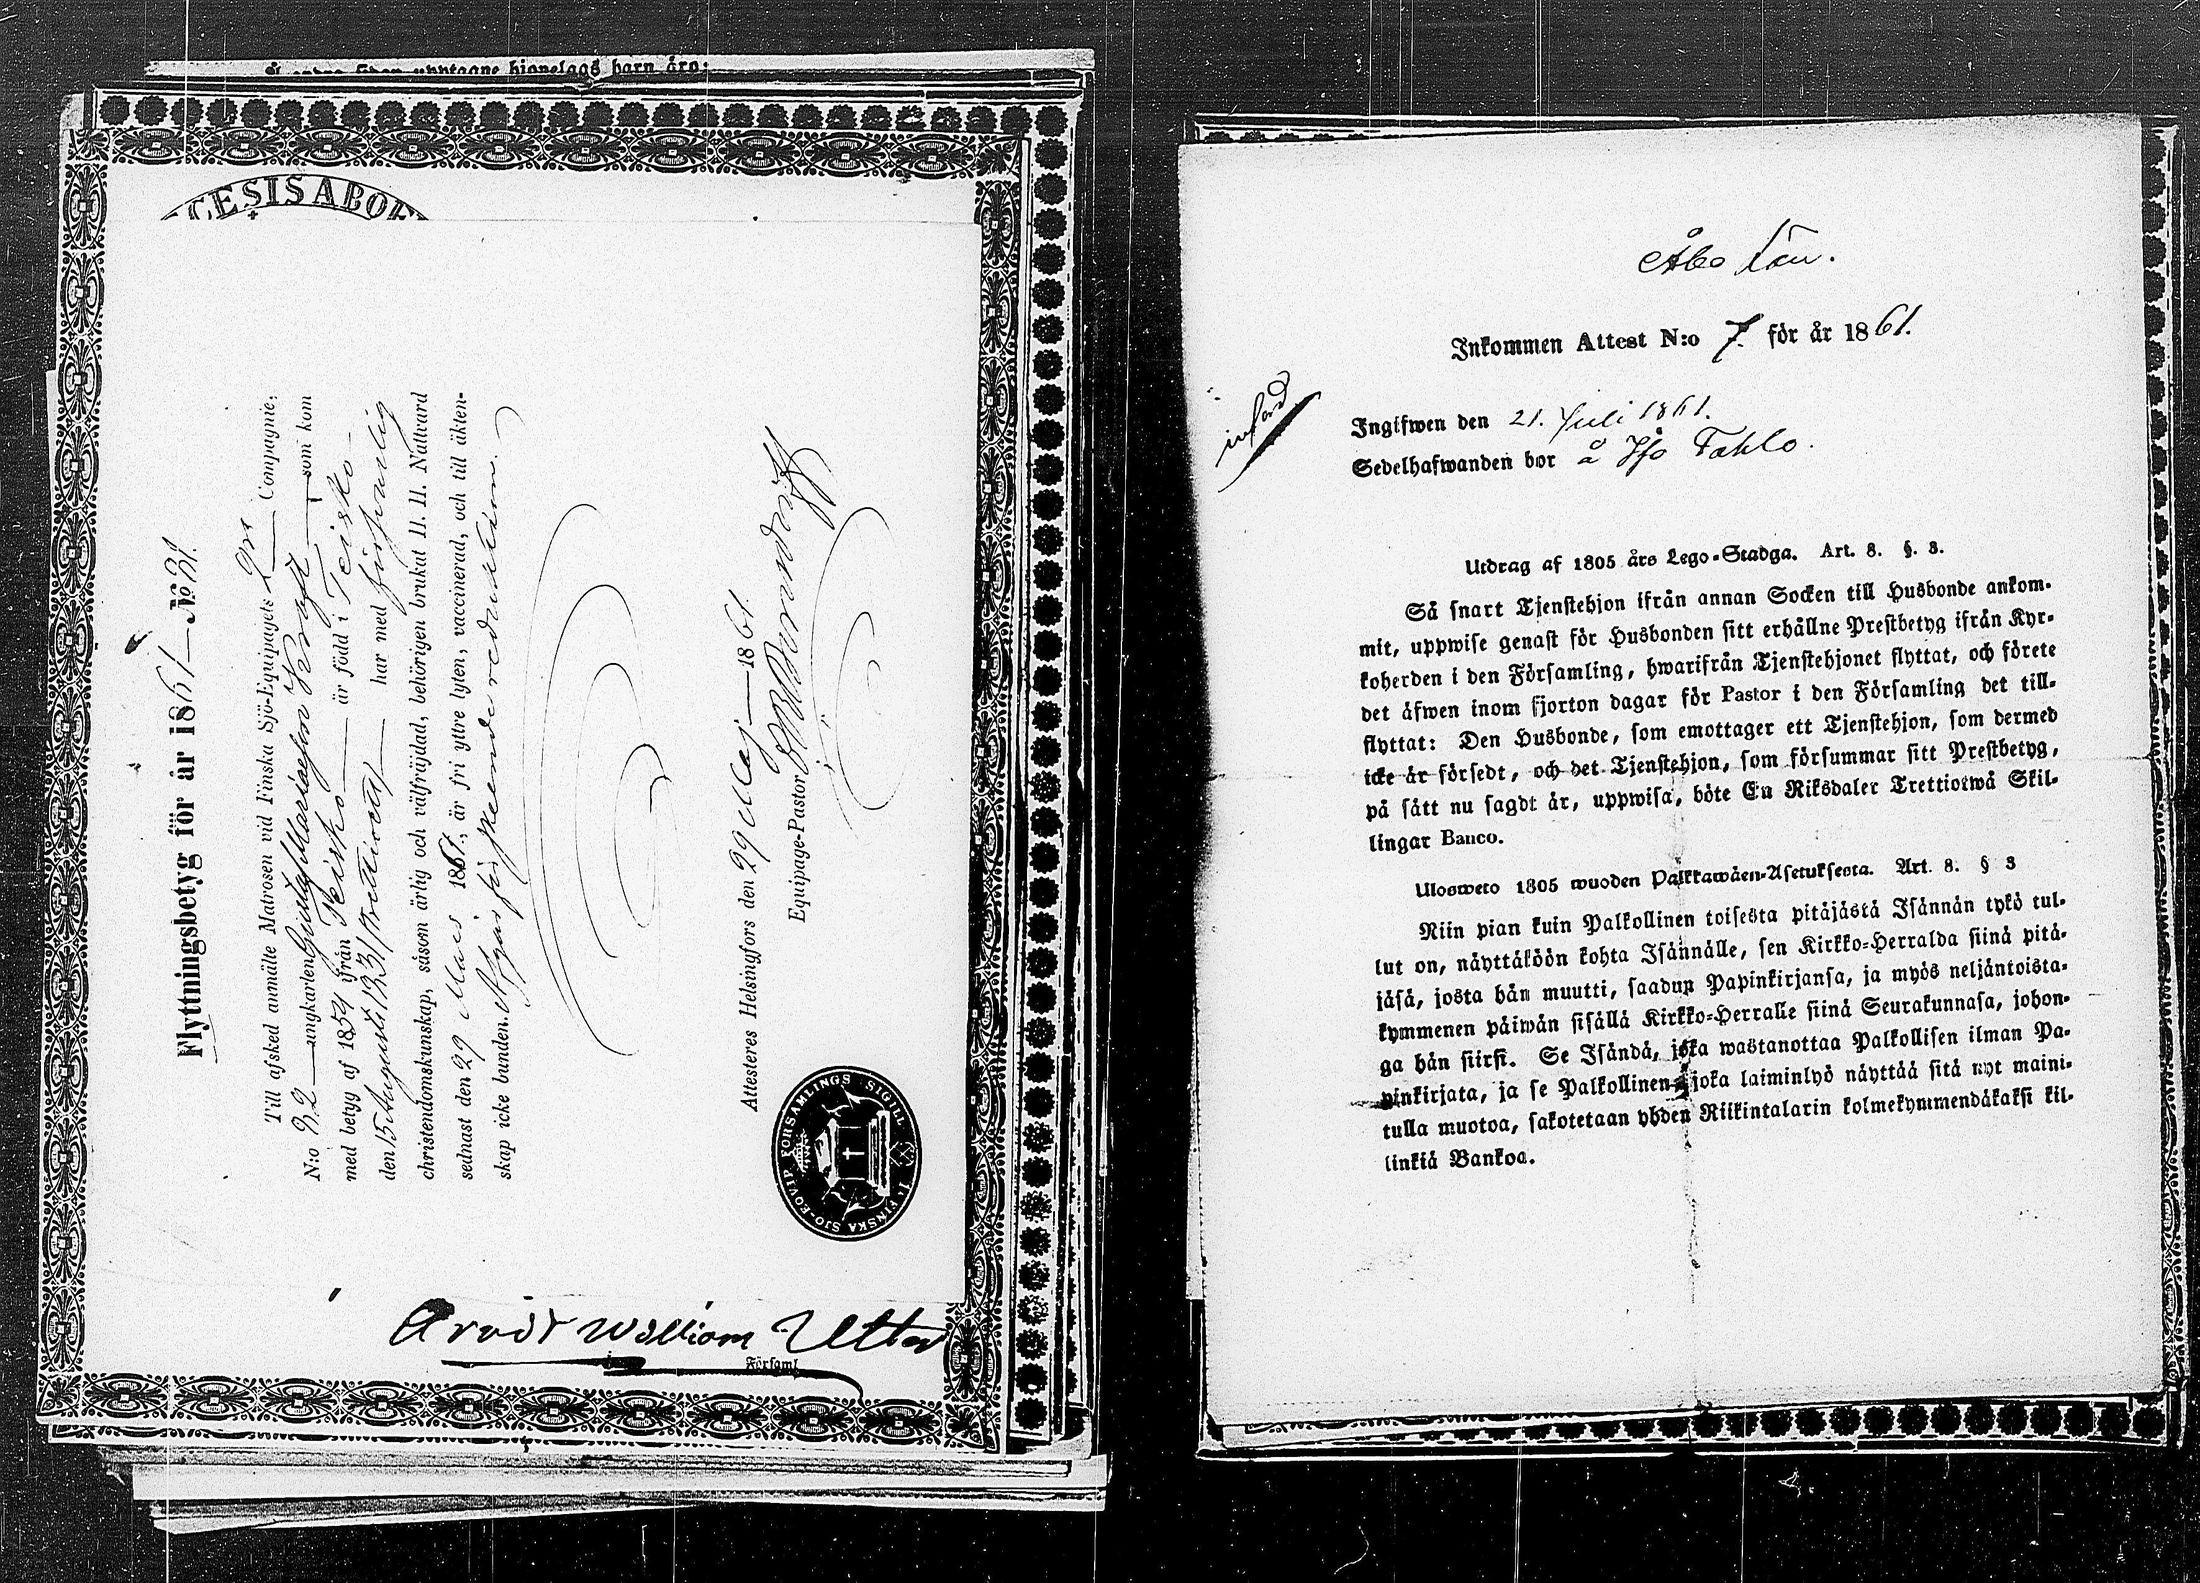 å andra sidan upptagne hjonelags barn äro:
CESIS ABOE
Flyttningsbetyg för år 1861 — № 31.
Till afsked anmälte Matrosen vid Finska Sjö-Equipagets 2dra Compagnie,
N:o 92 — ungkarlen Gustaf Mariaegen — som kom
med betyg af 1854 ifrån Teisko — är född i Teisko —
den 15 Augusti 1831 — har med försvarlig
christendomskunskap, såsom ärlig och välfräjdad, behörigen brukat H. H. Nattvard
sednast den 29 Mars 1861, är fri yttre lyten, vaccinerad, och till äkten-
skap icke bunden.
Attesteres Helsingfors den 29 Maj — 1861.
Equipage-Pastor
FINSKA SJÖ-EQVIP FÖRSAMLINGS SIGILL
Arvid William Utter
Församl.
Åbo län.
Inkommen Attest N:o 7. för år 1861.
införd
Ingifwen den 21. Juli 1861.
Sedelhafwanden bor å Yfö Tahlo.
Utdrag af 1805 års Lego-Stadga. Art. 8. §. 3.
Så snart Tjenstehjon ifrån annan Socken till Husbonde ankom-
mit, uppwise genast för Husbonden sitt erhållne Prestbetyg ifrån Kyr-
koherden i den Församling, hwarifrån Tjenstehjonet flyttat, och förete
det äfwen inom fjorton dagar för Pastor i den Församling det till-
flyttat: Den Husbonde, som emottager ett Tjenstehjon, som dermed
icke är försedt, och det Tjenstehjon, som försummar sitt Prestbetyg,
på sätt nu sagdt är, uppwisa, böte En Riksdaler Trettiotwå Skil-
lingar Banco.
Ulosweto 1805 wuoden Palkkawäen-Asetuksesta. Art. 8. § 3
Niin pian kuin Palkollinen toisesta pitäjästä Isännän tykö tul-
lut on, näyttäköön kohta Isännälle, sen Kirkko-Herralda siinä pitä-
jäsä, josta hän muutti, saadun Papinkirjansa, ja myös neljäntoista-
kymmenen päiwän sisällä Kirkko-Herralle siinä Seurakunnasa, johon-
ga hän siirsi. Se Isändä, joka wastanottaa Palkollisen ilman Pa-
pinkirjata, ja se Palkollinen, joka laiminlyö näyttää sitä nyt maini-
tulla muotoa, sakotetaan yhden Riikintalarin kolmekymmendäkaksi kil-
linkiä Bankoa.